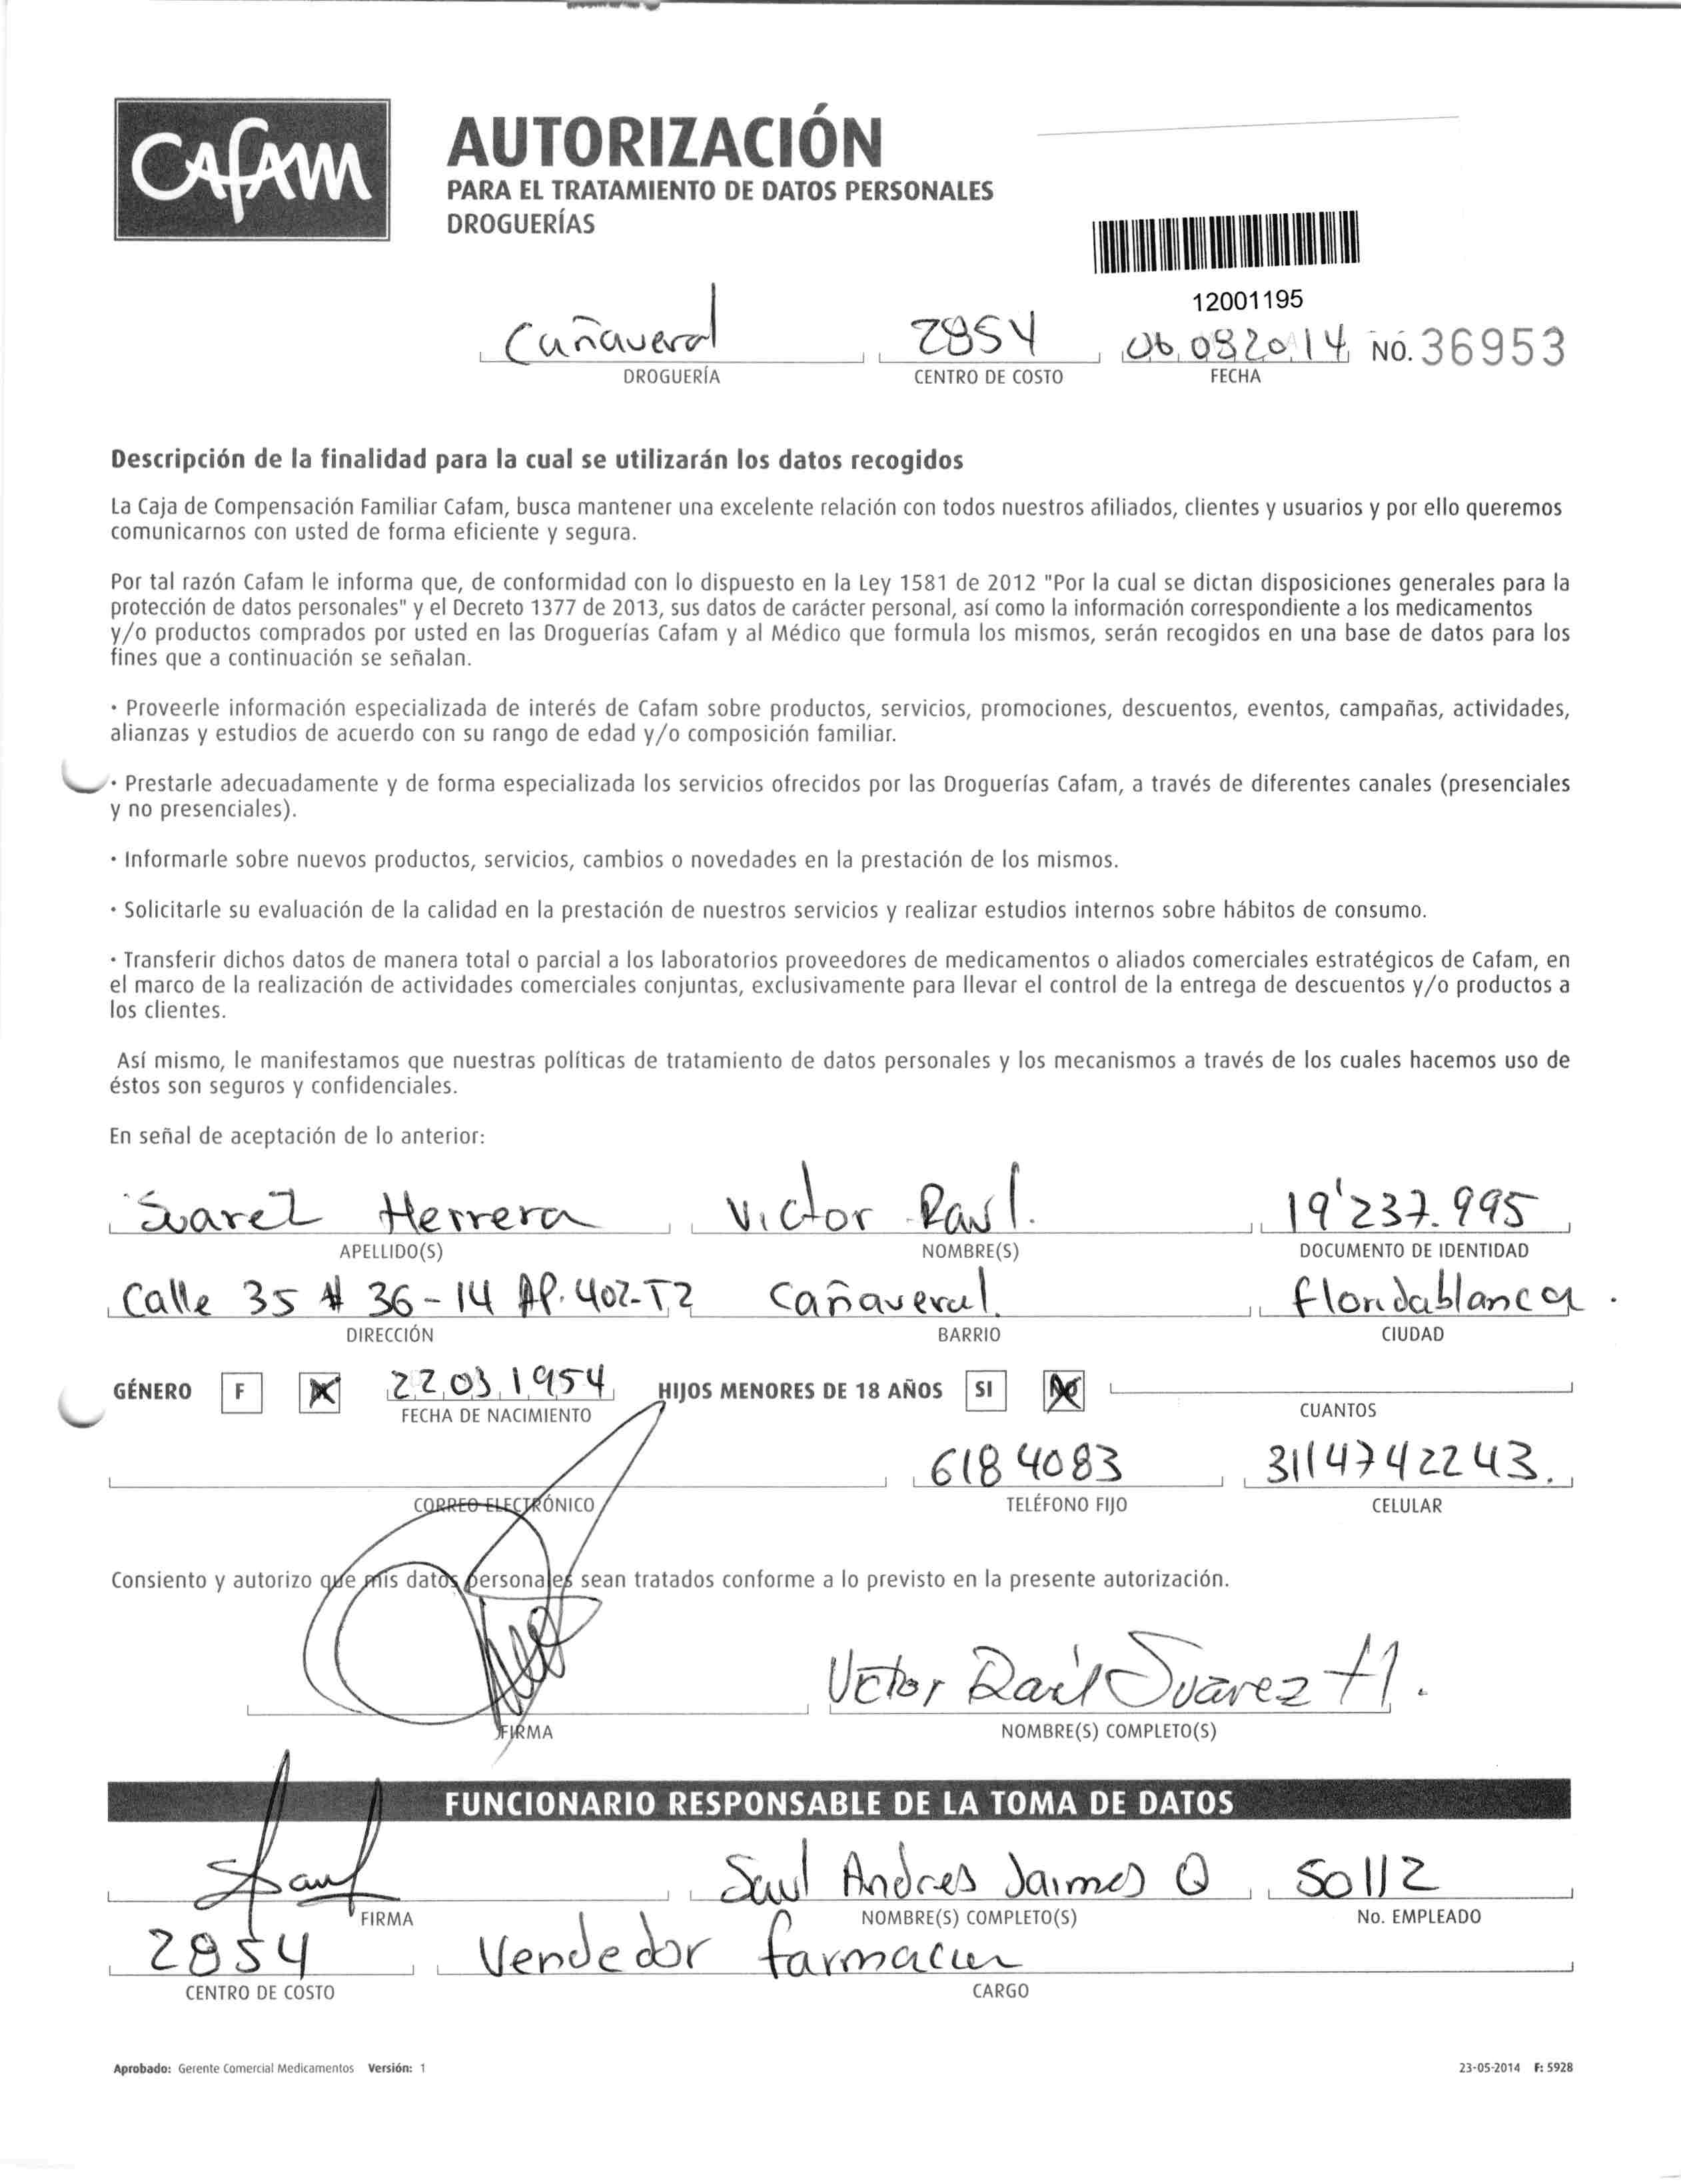 CAFAM
AUTORIZACIÓN
PARA EL TRATAMIENTO DE DATOS PERSONALES
DROGUERÍAS
12001195
Cañaveral 2854 06 08 2014 NO. 36953
DROGUERÍA CENTRO DE COSTO FECHA
Descripción de la finalidad para la cual se utilizarán los datos recogidos
La Caja de Compensación Familiar Cafam, busca mantener una excelente relación con todos nuestros afiliados, clientes y usuarios y por ello queremos
comunicarnos con usted de forma eficiente y segura.
Por tal razón Cafam le informa que, de conformidad con lo dispuesto en la Ley 1581 de 2012 "Por la cual se dictan disposiciones generales para la
protección de datos personales" y el Decreto 1377 de 2013, sus datos de carácter personal, así como la información correspondiente a los medicamentos
y/o productos comprados por usted en las Droguerías Cafam y al Médico que formula los mismos, serán recogidos en una base de datos para los
fines que a continuación se señalan.
· Proveerle información especializada de interés de Cafam sobre productos, servicios, promociones, descuentos, eventos, campañas, actividades,
alianzas y estudios de acuerdo con su rango de edad y/o composición familiar.
· Prestarle adecuadamente y de forma especializada los servicios ofrecidos por las Droguerías Cafam, a través de diferentes canales (presenciales
y no presenciales).
· Informarle sobre nuevos productos, servicios, cambios o novedades en la prestación de los mismos.
· Solicitarle su evaluación de la calidad en la prestación de nuestros servicios y realizar estudios internos sobre hábitos de consumo.
· Transferir dichos datos de manera total o parcial a los laboratorios proveedores de medicamentos o aliados comerciales estratégicos de Cafam, en
el marco de la realización de actividades comerciales conjuntas, exclusivamente para llevar el control de la entrega de descuentos y/o productos a
los clientes.
Así mismo, le manifestamos que nuestras políticas de tratamiento de datos personales y los mecanismos a través de los cuales hacemos uso de
éstos son seguros y confidenciales.
En señal de aceptación de lo anterior:
Suarez Herrera Victor Raul. 19'237.995
APELLIDO(S) NOMBRE(S) DOCUMENTO DE IDENTIDAD
Calle 35 # 36-14 AP. 402-T2 Cañaveral. floridablanca.
DIRECCIÓN BARRIO CIUDAD
GÉNERO F X 22 03 1954 HIJOS MENORES DE 18 AÑOS SI NO
FECHA DE NACIMIENTO CUANTOS
6184083 3114742243.
CORREO ELECTRÓNICO TELÉFONO FIJO CELULAR
Consiento y autorizo que mis datos personales sean tratados conforme a lo previsto en la presente autorización.
Victor Raúl Suarez H.
FIRMA NOMBRE(S) COMPLETO(S)
FUNCIONARIO RESPONSABLE DE LA TOMA DE DATOS
Saul Andres Jaimes Q 50112
FIRMA NOMBRE(S) COMPLETO(S) No. EMPLEADO
2854 Vendedor farmacia
CENTRO DE COSTO CARGO
Aprobado: Gerente Comercial Medicamentos Versión: 1 23-05-2014 F: 5928